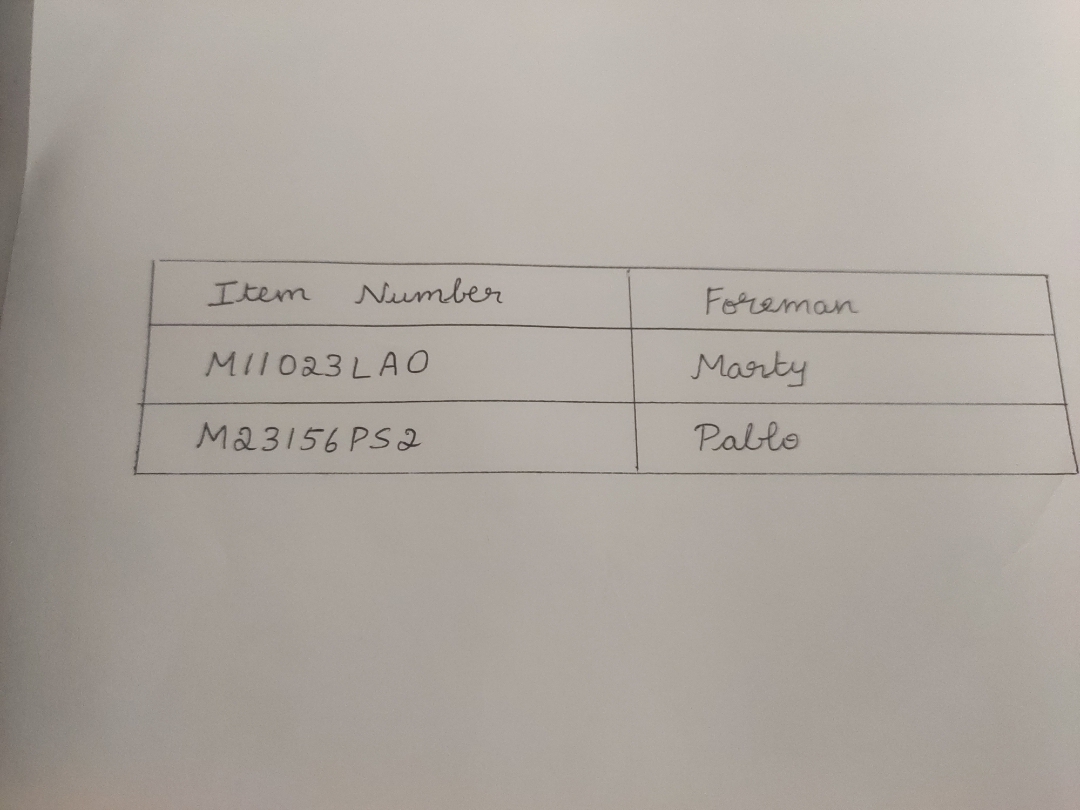 Item Number Foreman
M11023LA0 Marty
M23156PS2 Pablo